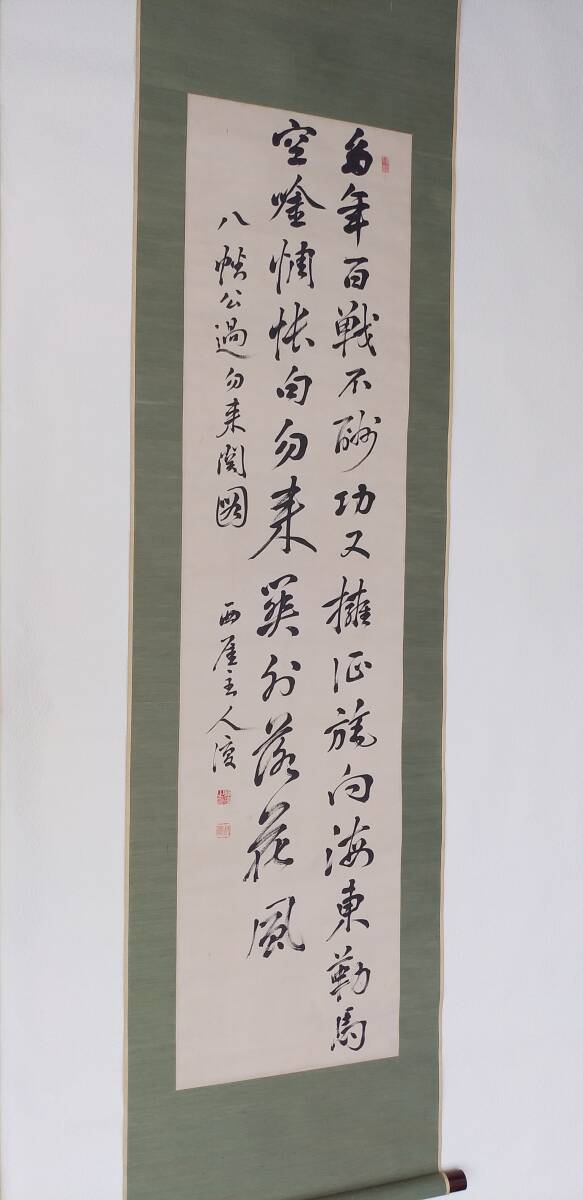 多年百戦不酬功又擁征旄向海東勒馬
空吟惆悵句勿来関外落花風
八幡公過勿来関図
西厓主人